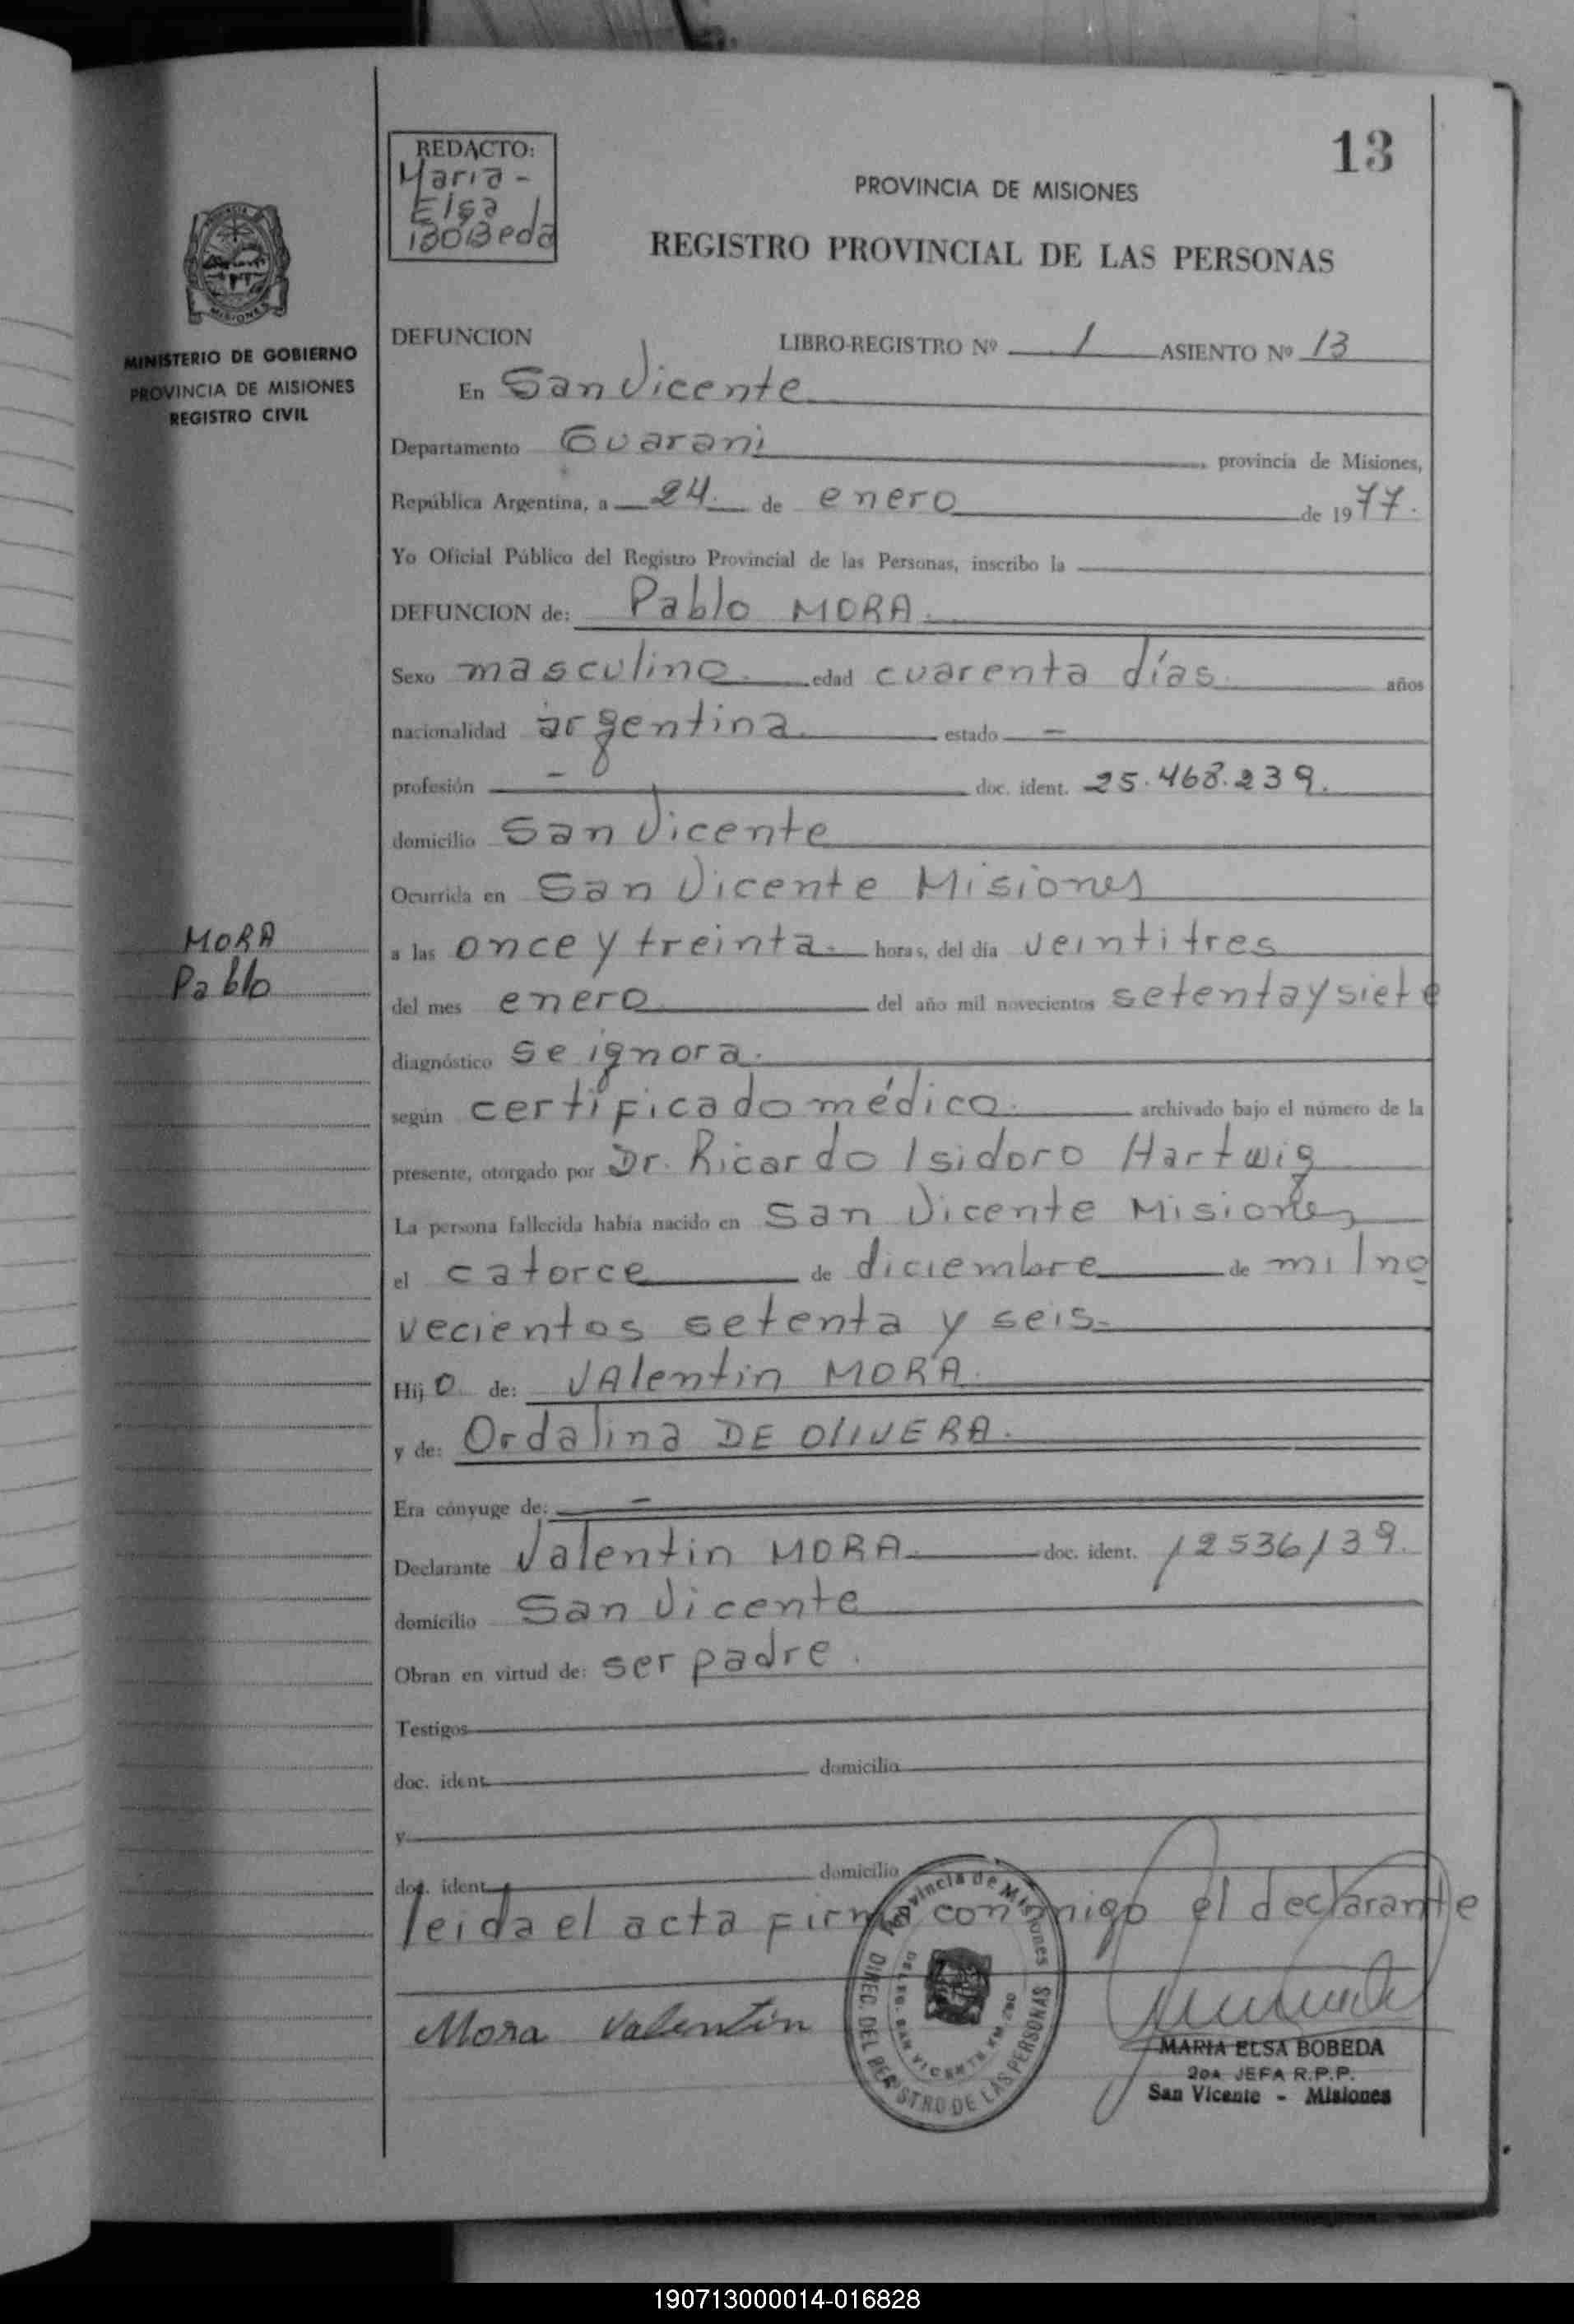 13
REDACTO:
Maria -
Elsa
Bobeda
PROVINCIA DE MISIONES
REGISTRO PROVINCIAL DE LAS PERSONAS
MINISTERIO DE GOBIERNO
PROVINCIA DE MISIONES
REGISTRO CIVIL
DEFUNCION LIBRO-REGISTRO Nº 1 ASIENTO Nº 13
En San Vicente
Departamento Guarani provincia de Misiones,
República Argentina, a 24. de enero de 1977.
Yo Oficial Público del Registro Provincial de las Personas, inscribo la
DEFUNCION de: Pablo MORA.
Sexo masculino. edad cuarenta días. años
nacionalidad argentina. estado -
profesión - doc. ident. 25.468.239.
domicilio San Vicente
Ocurrida en San Vicente Misiones
MORA
Pablo
a las once y treinta. horas, del día veintitres
del mes enero del año mil novecientos setenta y siete
diagnóstico se ignora.
según certificado médico. archivado bajo el número de la
presente, otorgado por Dr. Ricardo Isidoro Hartwig
La persona fallecida había nacido en San Vicente Misiones
el catorce de diciembre de mil no
vecientos setenta y seis.
Hijo de: VAlentin MORA.
y de: Ordalina DE OlIVERA.
Era cónyuge de: -
Declarante Valentin MORA. doc. ident. 12536139.
domicilio San Vicente
Obran en virtud de: ser padre.
Testigos
doc. ident. domicilio
y
doc. ident. domicilio
leida el acta firma conmigo el declarante
Mora Valentín
Provincia de Misiones
DIREC. DEL REGISTRO DE LAS PERSONAS
DELEG. SAN VICENTE KM.
MARIA ELSA BOBEDA
2DA JEFA R.P.P.
San Vicente - Misiones
190713000014-016828